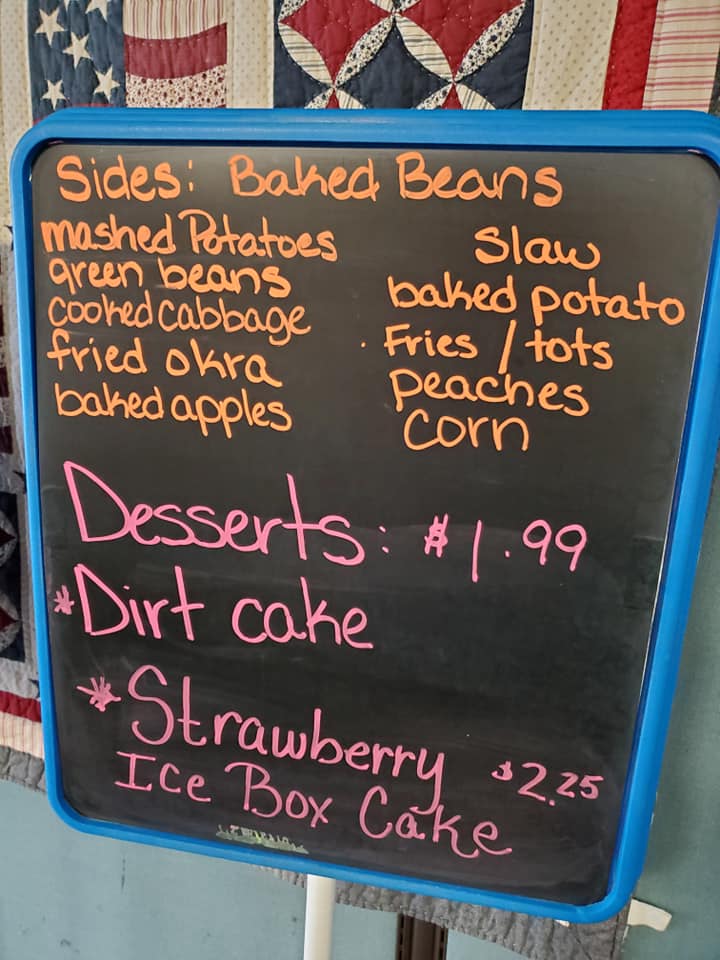 Sides: Baked Beans
mashed Potatoes
green beans
cooked cabbage
fried okra
baked apples
Slaw
baked potato
Fries / tots
peaches
corn
Desserts: $1.99
*Dirt cake
*Strawberry $2.25
Ice Box Cake